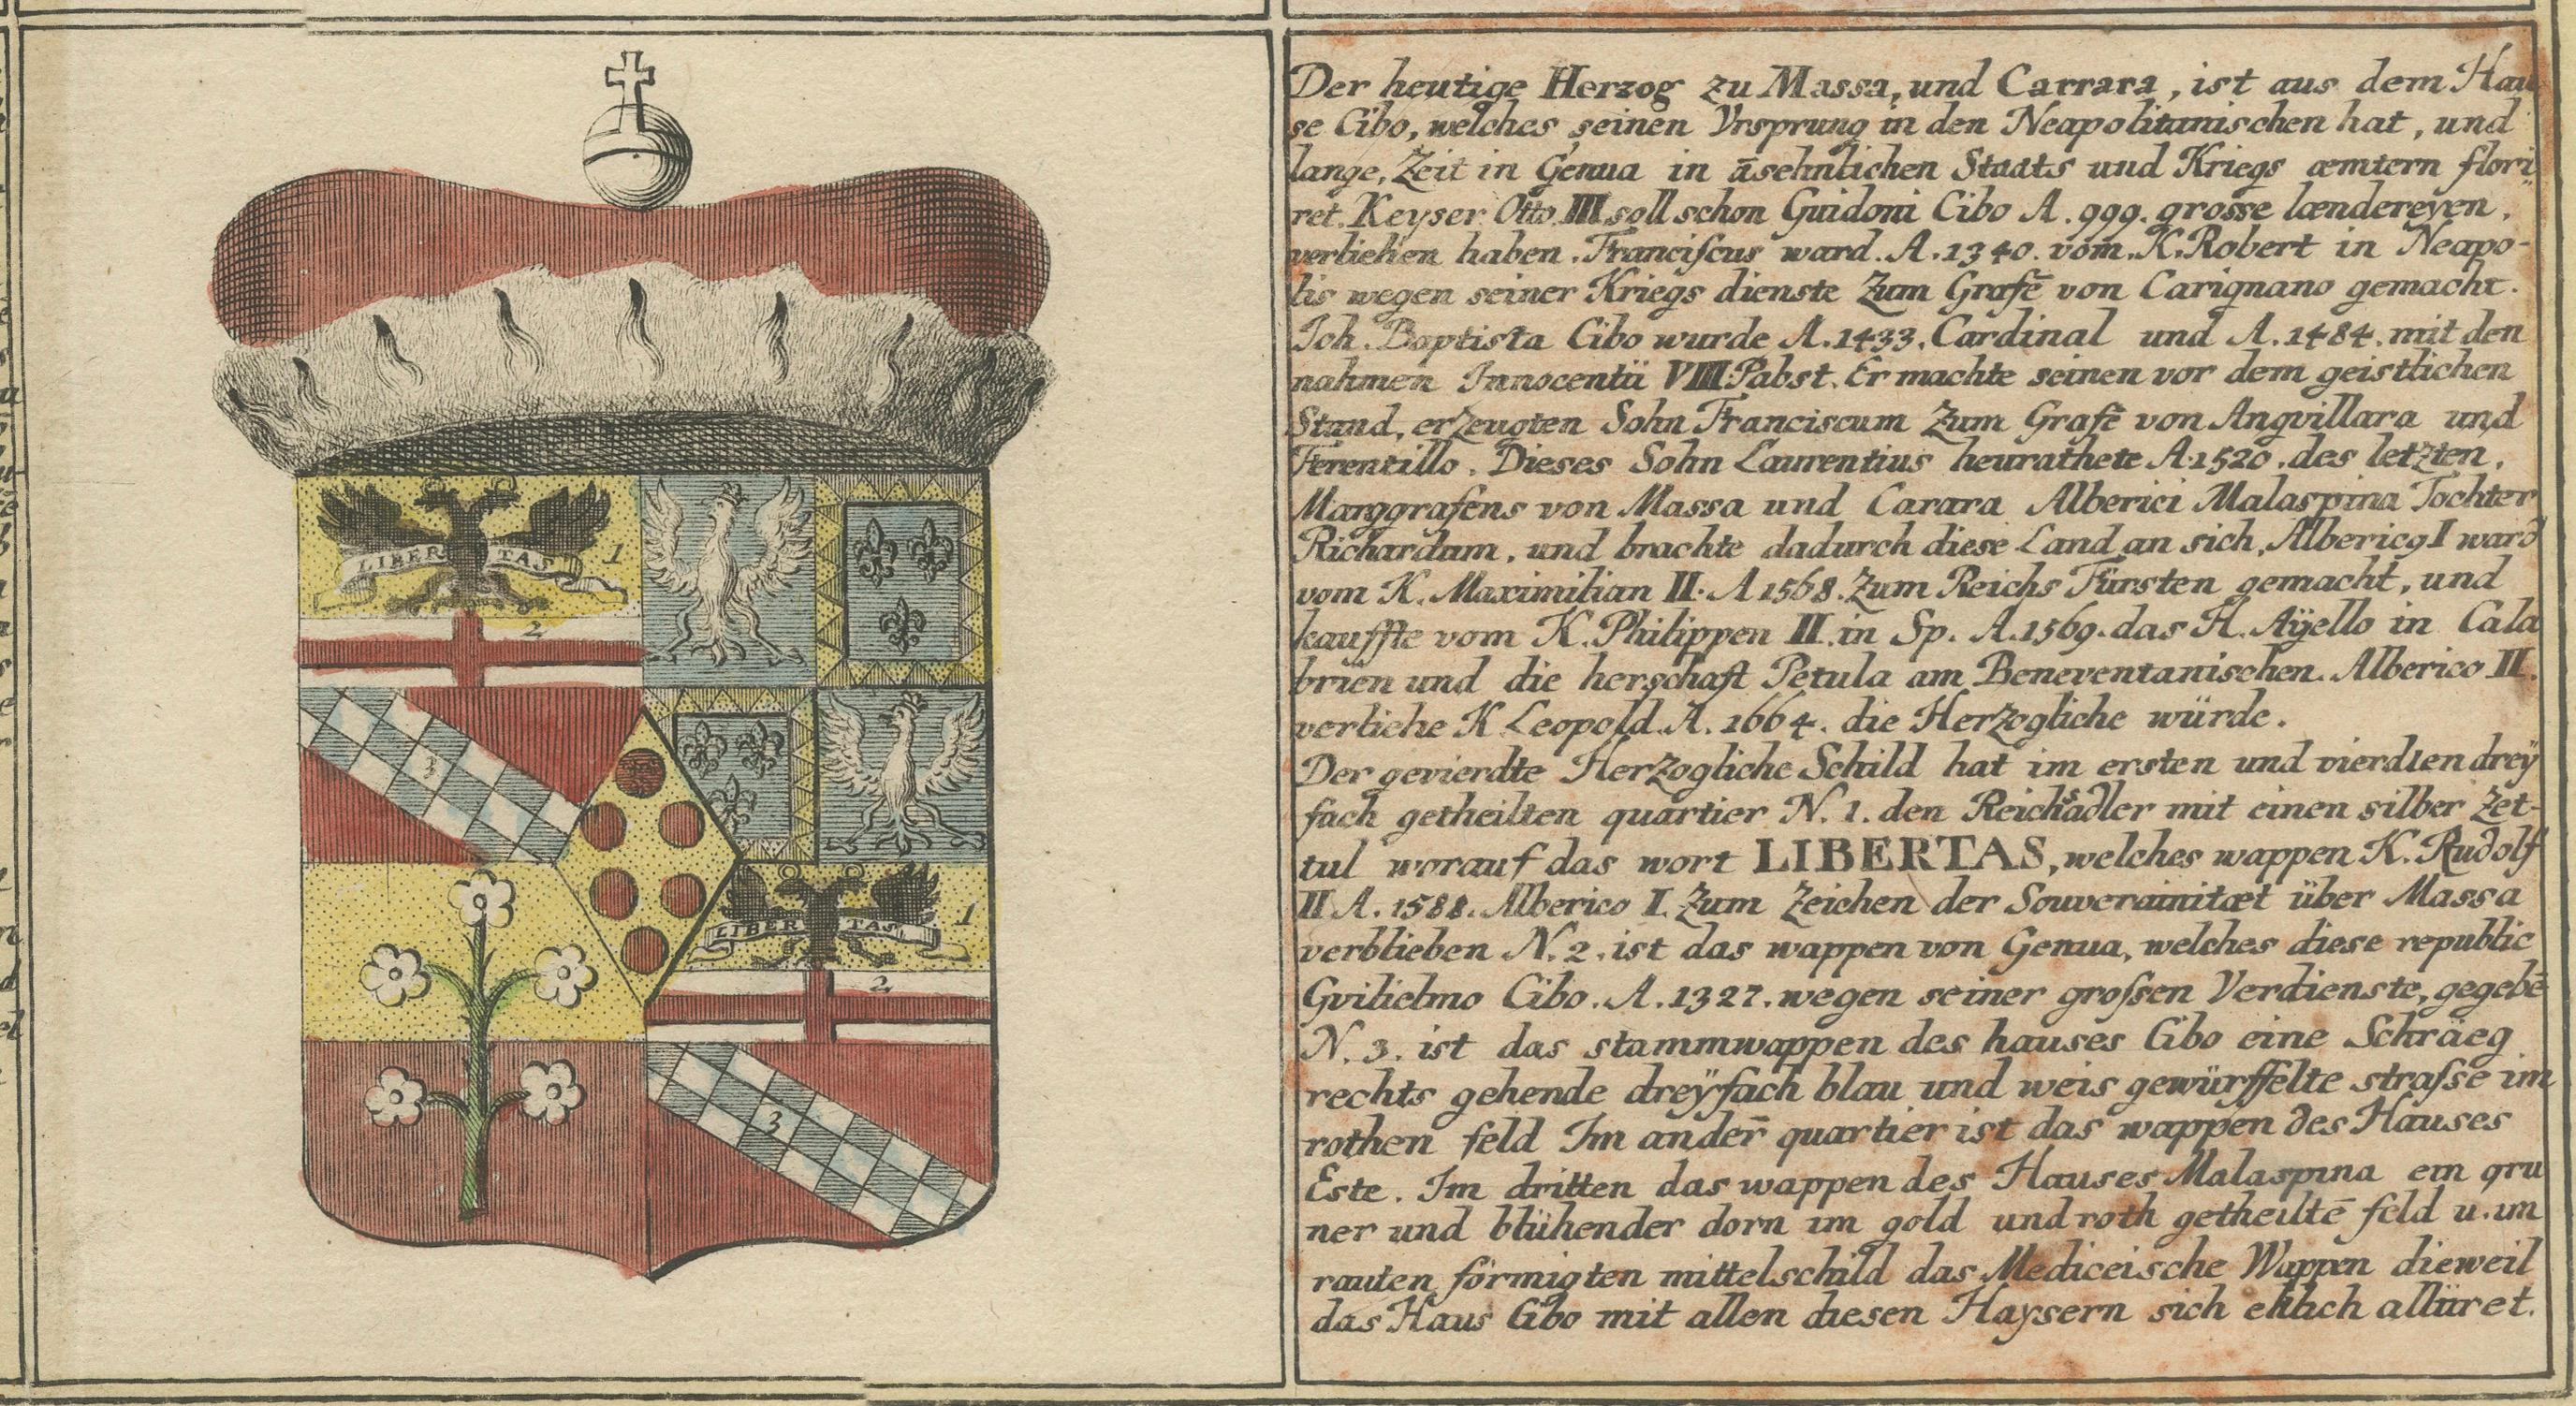 LIBERTAS
1
2
3
LIBERTAS
1
2
3
Der heutige Herzog zu Massa, und Carrara, ist aus dem Hau
se Cibo, welches seinen Vrsprung in den Neapolitanischen hat, und
lange, Zeit in Genua in āsehnlichen Staats und Kriegs æmtern flori
ret. Keyser Otto III soll schon Guidoni Cibo A. 999. grosse lændereyen,
verliehen haben. Franciſcus ward. A. 1340. vom. K. Robert in Neapo-
lis wegen seiner Kriegs dienste Zum Grafē von Carignano gemacht.
Joh. Baptista Cibo wurde A. 1433. Cardinal und A. 1484. mit den
nahmen Innocentii VIII Pabst. Er machte seinen vor dem geistlichen
Stand, erzeugten Sohn Franciscum Zum Grafē von Angvillara und
Ferentillo. Dieses Sohn Laurentius heurathete A. 1520. des letzten,
Marggrafens von Massa und Carara Alberici Malaspina Tochter
Richardam, und brachte dadurch diese Land an sich, Albericq I ward
vom K. Maximilian II. A 1568. Zum Reichs Fürsten gemacht, und
kauffte vom K. Philippen II. in Sp. A. 1569. das H. Aÿello in Cala
brien und die herschaft Petula am Beneventanischen. Alberico II.
verliehe K Leopold. A. 1664. die Herzogliche würde.
Der gevierdte Herzogliche Schild hat im ersten und vierdten dreÿ
fach getheilten quartier N. 1. den Reichsadler mit einen silber Zet-
tul worauf das wort LIBERTAS, welches wappen K. Rudolf
II A. 1588. Alberico I. Zum Zeichen der Souverainitæt über Massa
verblieben N. 2. ist das wappen von Genua, welches diese republic
Gvilielmo Cibo. A. 1327. wegen seiner groſsen Verdienste, gegebē
N. 3. ist das stammwappen des hauses Cibo eine Schräeg
rechts gehende dreÿfach blau und weis gewürffelte straſse im
rothen feld Im ander̄ quartier ist das wappen des Hauses
Este. Im dritten das wappen des Hauses Malaspina ein gru
ner und blühender dorn im gold und roth getheiltē feld u. im
rauten förmigten mittelschild das Mediceische Wappen dieweil
das Haus Cibo mit allen diesen Haysern sich ehlich alliiret.